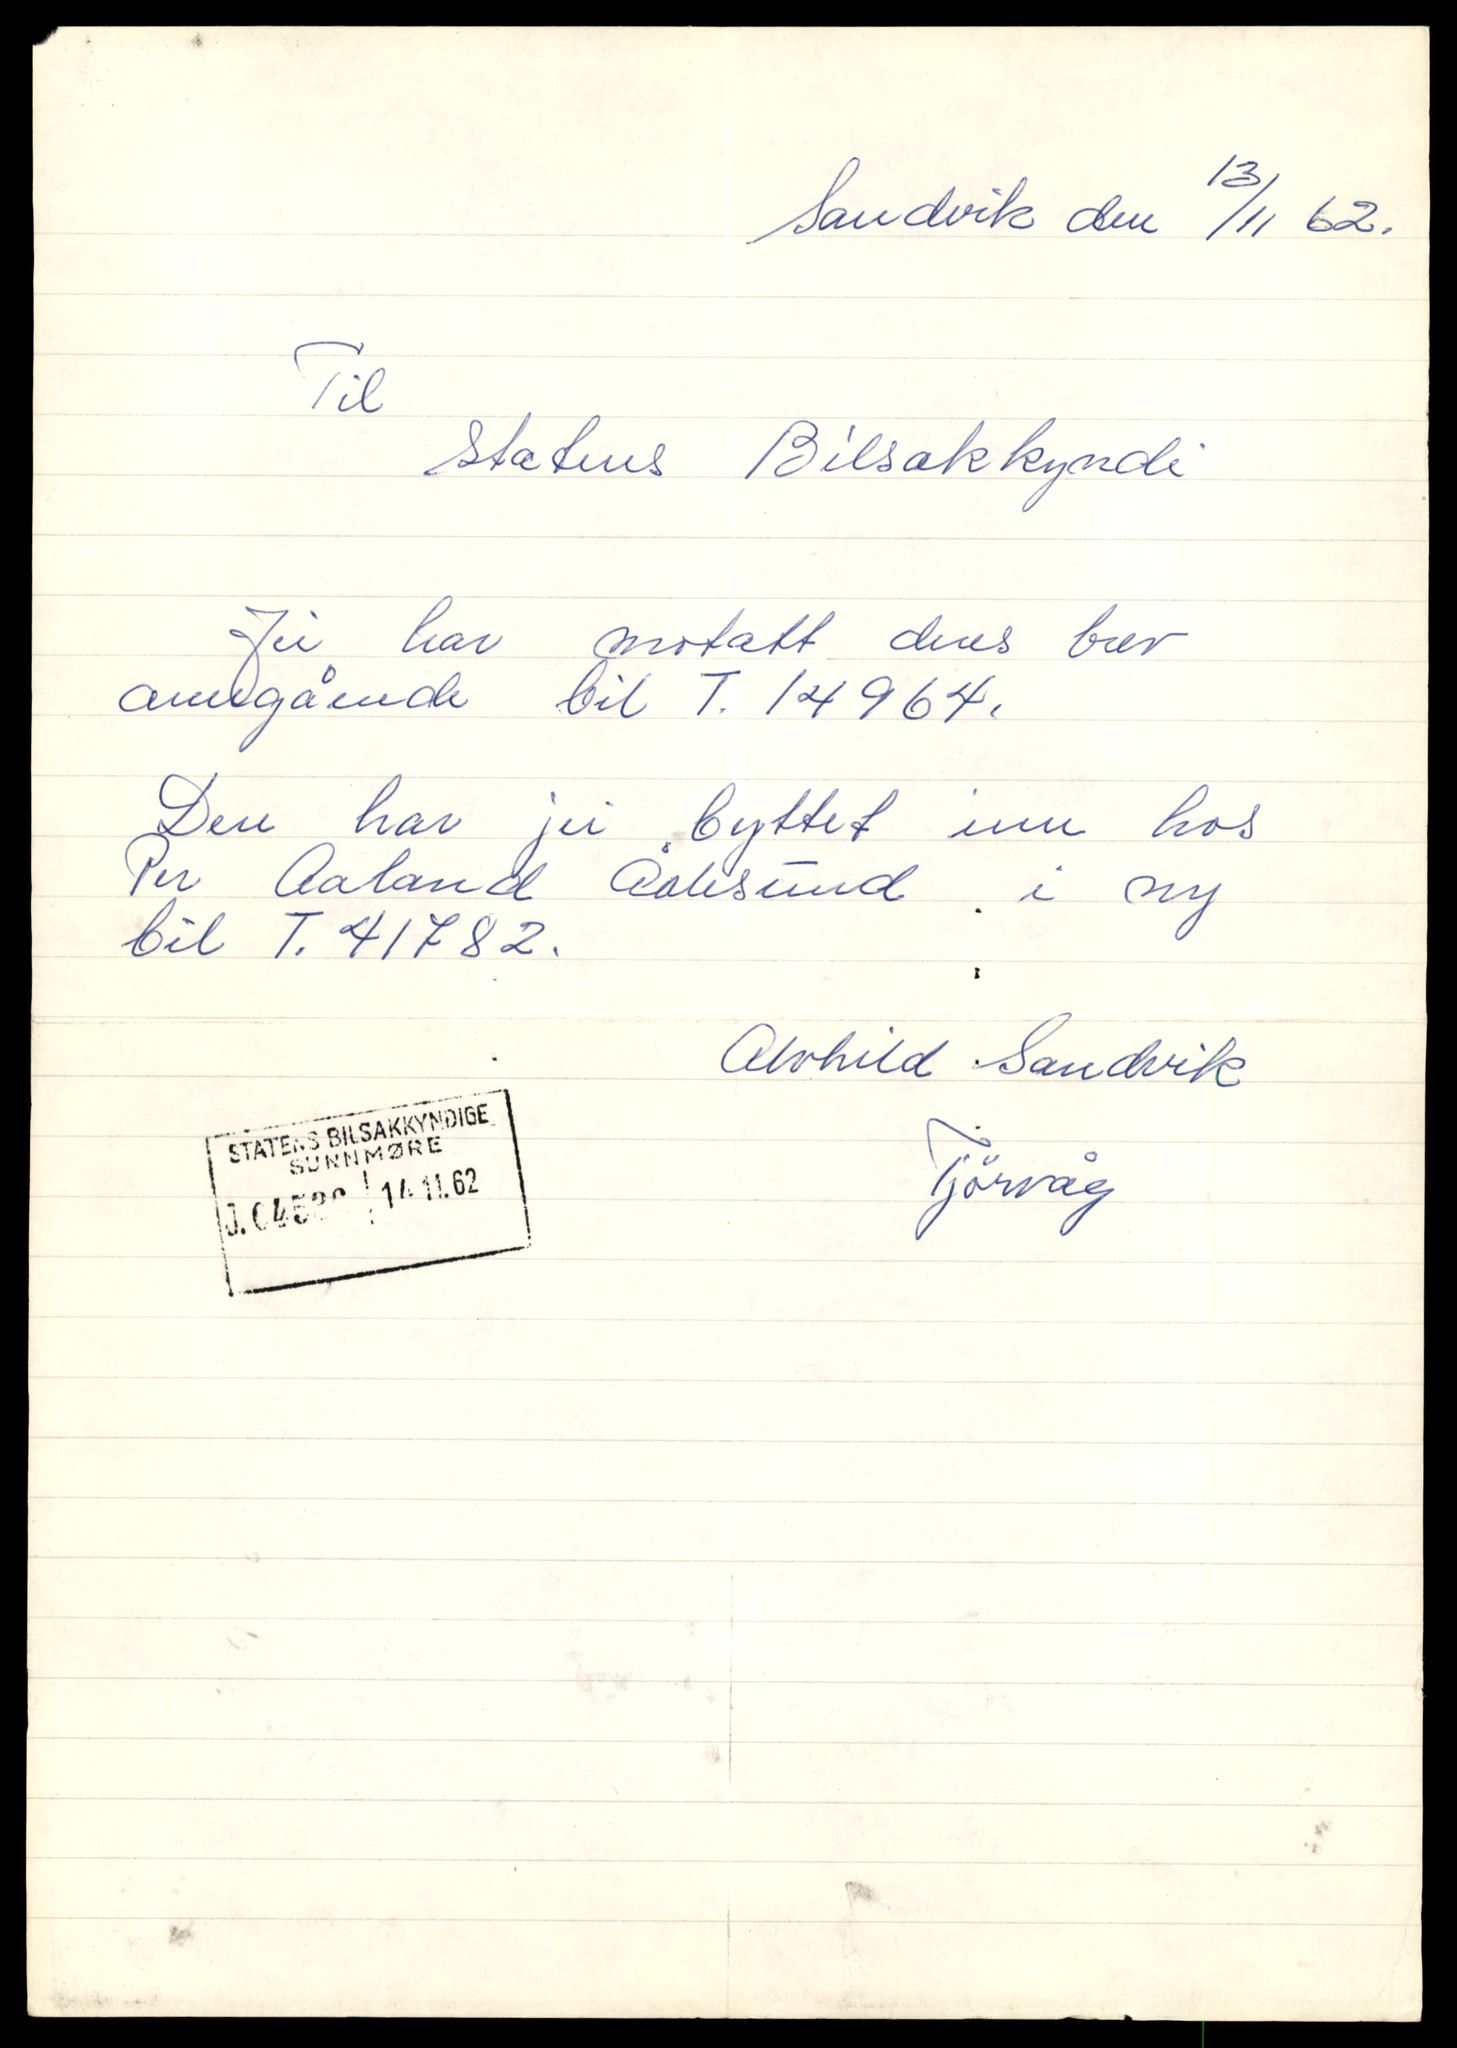 Sandvik den 13/11 62.
Til
Statens Bilsakkyndi
Jei har motatt deres brev
anngående bil T. 14964.
Den har jei byttet inn hos
Per Aaland Ålesund i ny
bil T. 41782.
Alvhild Sandvik
Tjörvåg
STATENS BILSAKKYNDIGE
SUNNMØRE
14.11.62